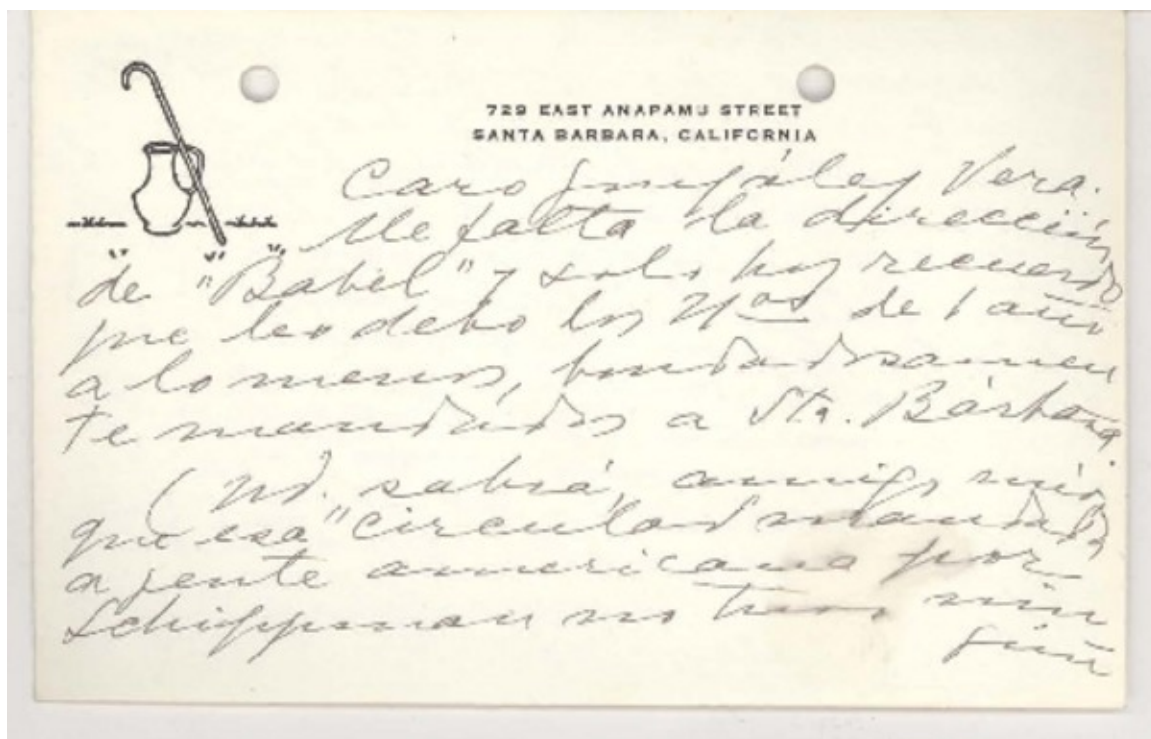 729 EAST ANAPAMU STREET
SANTA BARBARA, CALIFORNIA
Caro González Vera.
Me falta la dirección
de "Babel" y solo hoy recuerdo
que les debo los Nos de 1 año
a lo menos, bondadosamen
te mandados a Sta. Bárbara
(Ud. sabrá, amigo mío,
que esa "circular mandada
a jente americana por
Schiffman no tuvo nin
gún